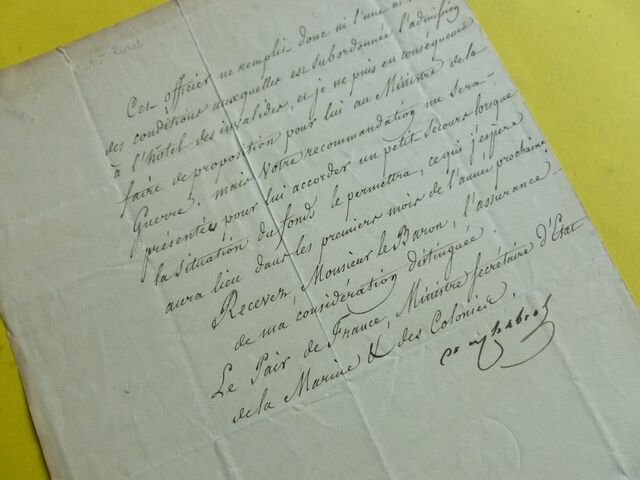 Cet officier ne remplit donc ni l'une ni
des conditions auxquelles est subordonnée l'admission
à l'hôtel des invalides, et je ne puis en conséquence
faire de proposition pour lui au Ministre de la
Guerre. mais Votre recommandation me sera
présente pour lui accorder un petit secours lorsque
la situation du fonds le permettra, ce qui j'espère
aura lieu dans les premiers mois de l'année prochaine.
Recevez, Monsieur le Baron, l'assurance
de ma considération distinguée.
Le Pair de France, Ministre Secrétaire d'Etat
de la Marine & des Colonies,